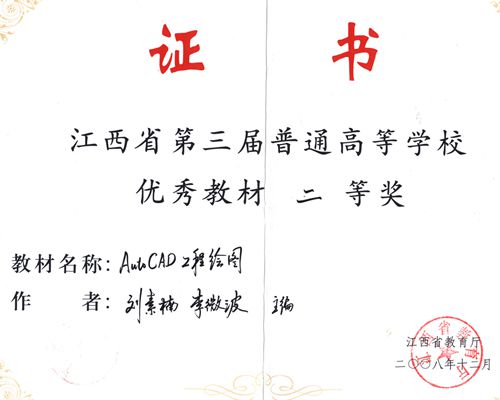 证 书
江西省第三届普通高等学校
优秀教材 二 等奖
教材名称：AutoCAD工程绘图
作 者：刘素楠 李微波 主编
江西省教育厅
二〇〇八年十二月
江西省教育厅